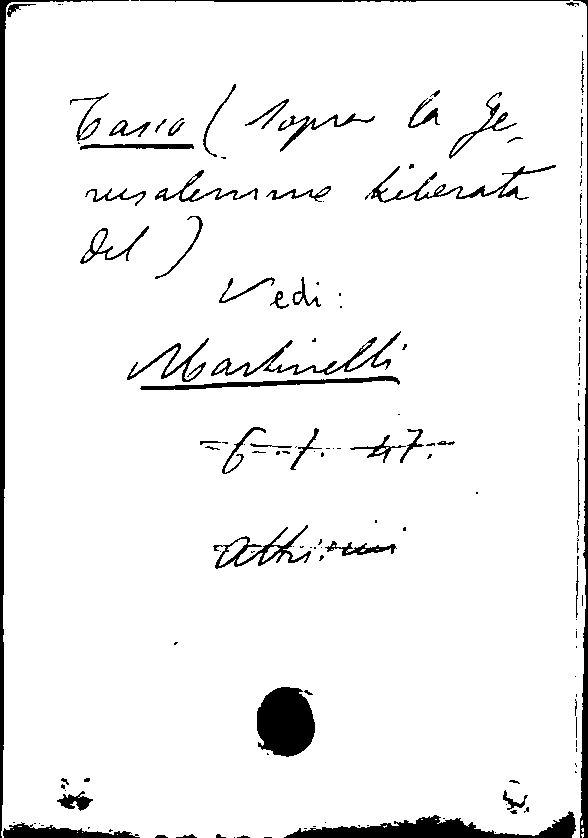 Tasso (sopra la Ge-
rusalemme liberata
del)
Vedi:
Martinelli
6-.1. 47.